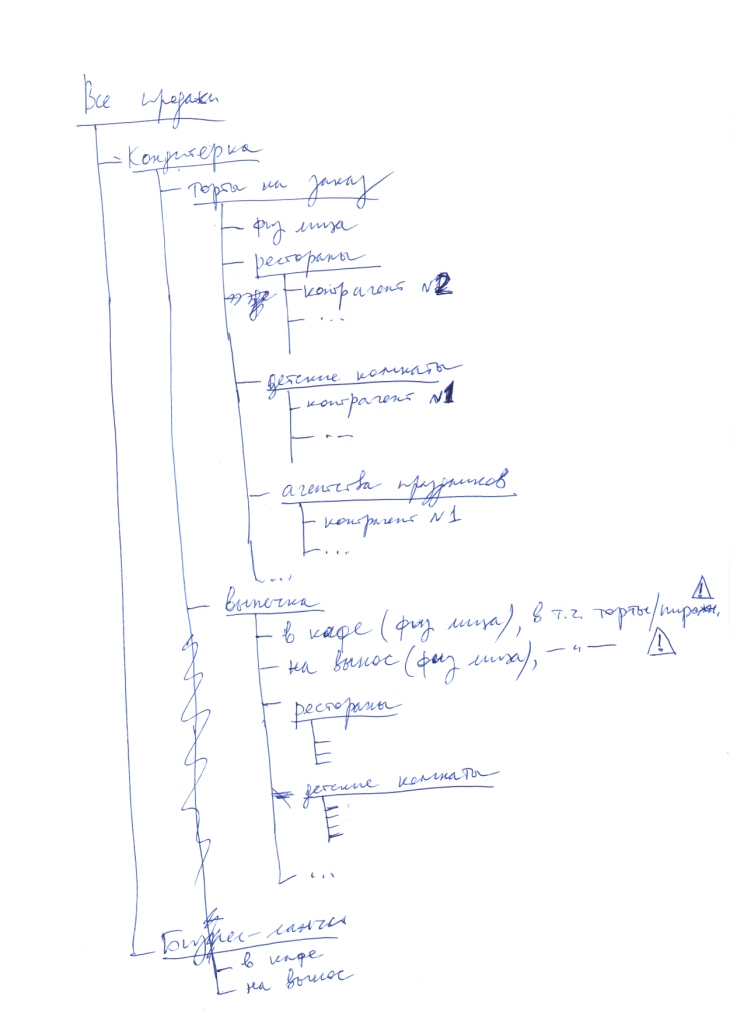 Все продажи
Кондитерка
торты на заказ
физ лица
рестораны
контрагент №2
...
детские комнаты
контрагент №1
- " -
агентства праздников
контрагент №1
...
...
выпечка
в кафе (физ лица), в т.ч. торты/пирожн. !
на вынос (физ лица), — " — !
рестораны
детские комнаты
...
Бизнес-ланчи
в кафе
на вынос